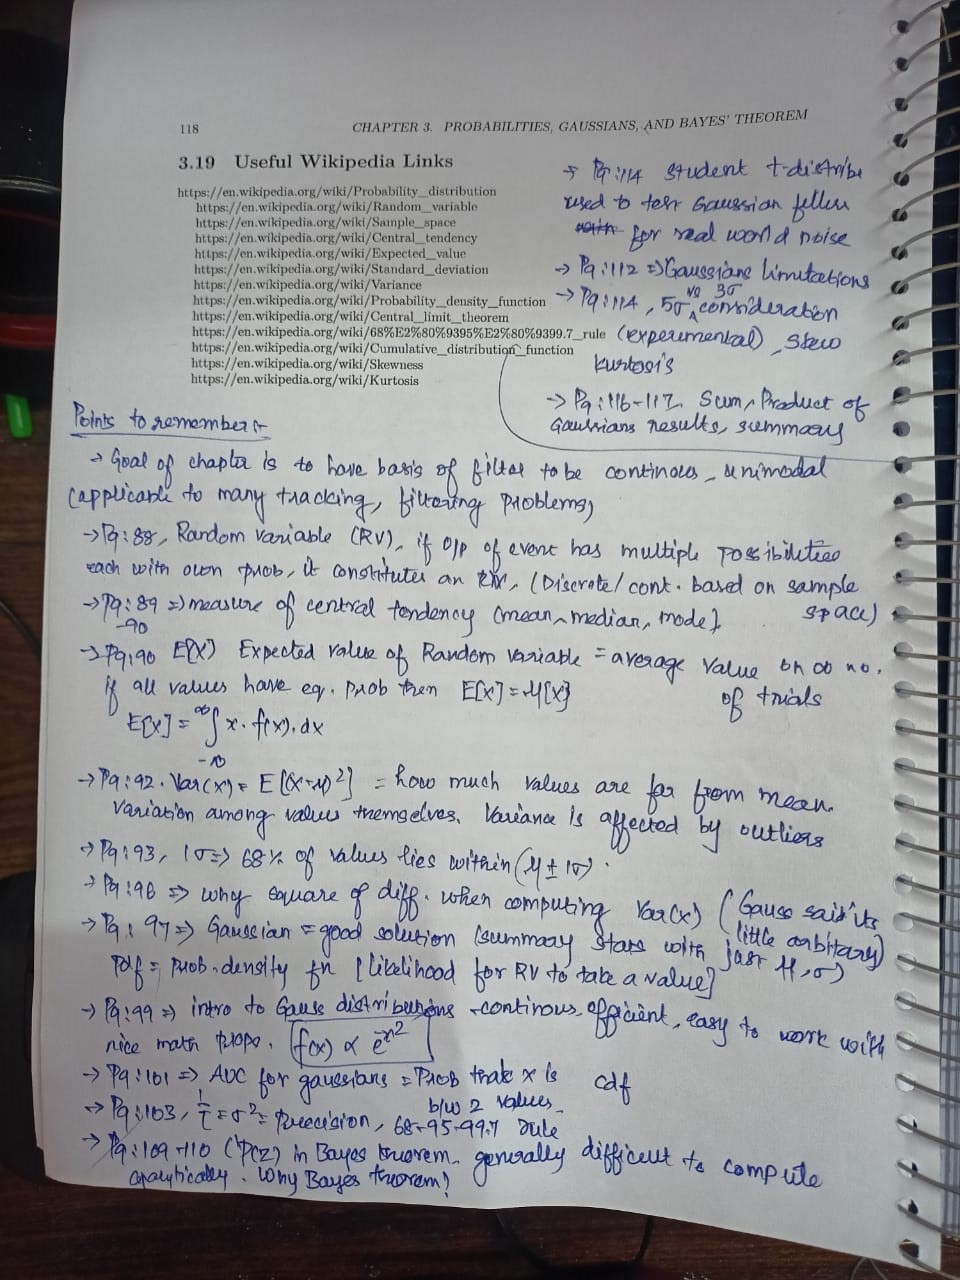 118 CHAPTER 3. PROBABILITIES, GAUSSIANS, AND BAYES' THEOREM
3.19 Useful Wikipedia Links
https://en.wikipedia.org/wiki/Probability_distribution
https://en.wikipedia.org/wiki/Random_variable
https://en.wikipedia.org/wiki/Sample_space
https://en.wikipedia.org/wiki/Central_tendency
https://en.wikipedia.org/wiki/Expected_value
https://en.wikipedia.org/wiki/Standard_deviation
https://en.wikipedia.org/wiki/Variance
https://en.wikipedia.org/wiki/Probability_density_function
https://en.wikipedia.org/wiki/Central_limit_theorem
https://en.wikipedia.org/wiki/68%E2%80%9395%E2%80%9399.7_rule
https://en.wikipedia.org/wiki/Cumulative_distribution_function
https://en.wikipedia.org/wiki/Skewness
https://en.wikipedia.org/wiki/Kurtosis
→ Pg:114 student t-distribe
used to test Gaussian
for real world noise
→ Pg:112 => Gaussians limitations
→ Pg:114, 5σ vs 3σ consideration
(experimental), skew
Kurtosis
→ Pg:116-117 Sum, Product of
Gaussians results, summary
Points to remember:-
→ Goal of chapter is to have basis of filter to be continous, unimodal
(applicable to many tracking, filtering problems)
→ Pg:88, Random variable (RV), if O/p of event has multiple possibilities
each with own prob, it constitutes an RV, (Discrete/cont. based on sample
space)
→ Pg:89 => measure of central tendency (mean, median, mode)
-90
→ Pg:90 E(X) Expected value of Random variable = average value on ∞ no.
of trials
if all values have eq. prob then E[X] = μ[x]
E[X] = ∫ x. f(x). dx
∞
-∞
→ Pg:92. Var(X) = E[(X-μ)²] = how much values are far from mean.
Variation among values themselves. Variance is affected by outliers
→ Pg:93, 1σ => 68% of values lies within (μ ± 1σ).
→ Pg:96 => why square of diff. when computing Var(x) (Gauss said its
little arbitary)
→ Pg:97 => Gaussian = good solution (summary stats with just μ, σ)
Pdf = prob. density fn [likelihood for RV to take a value]
→ Pg:99 => intro to Gauss distributions - continous, efficient, easy to work with
nice math props. f(x) ∝ e^-x²
→ Pg:101 => AUC for gaussians = Prob that x is
b/w 2 values
cdf
→ Pg:103, 1/τ = σ² = Precision, 68-95-99.7 rule
→ Pg:109-110 (P(Z) in Bayes theorem generally difficult to compute
analytically. Why Bayes theorem?